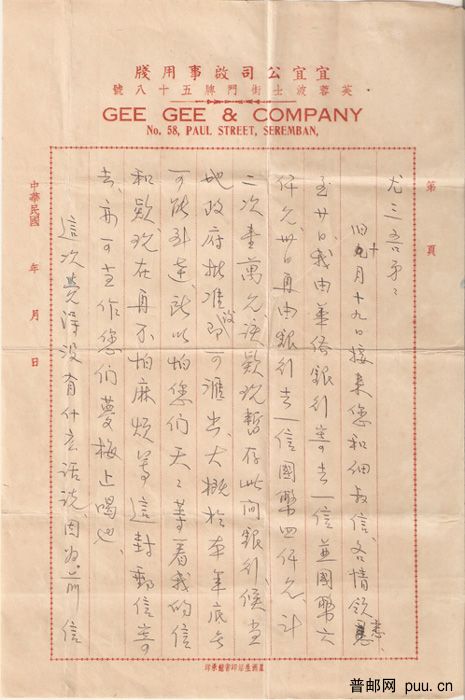 宜宜公司啟事用牋
芙蓉波士街門牌五十八號
GEE GEE & COMPANY
No. 58, PAUL STREET, SEREMBAN,
第 頁
尤三吾弟:
旧十月十九日接来您和细叔信,各情领悉
至廿日我由華僑銀行寄去一信並國幣六
仟元,卅日再由銀行去一信國幣四仟元,计
二次壹萬元,该欵现暫存此间銀行候當
地政府批准後即可滙出,大概於本年底与
可能到達,所以怕您们天天等着我的信
和欵,现在再不怕麻烦等這封郵信寄
去,亦可当作您们夢梅上喝池
這次覺得没有什么话说,因为前信
中華民國 年 月 日
普邮网 puu.cn